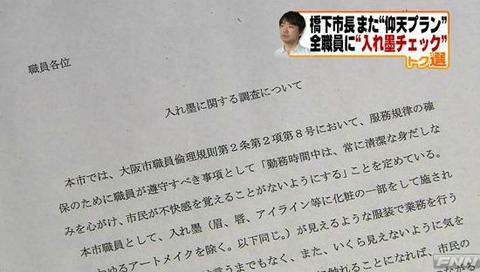 橋下市長 また“仰天プラン”
全職員に“入れ墨チェック”
トク選
職員各位
入れ墨に関する調査について
本市では、大阪市職員倫理規則第2条第2項第8号において、服務規律の確
保のために職員が遵守すべき事項として「勤務時間中は、常に清潔な身だしな
みを心がけ、市民が不快感を覚えることがないようにする」ことを定めている。
本市職員として、入れ墨（眉、唇、アイライン等に化粧の一部をして施され
わゆるアートメイクを除く。以下同じ。）が見えるような服装で業務を行う
言うまでもなく、また、いくら見えないように気を
触れることになれば、市民の
FNN